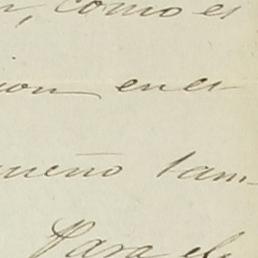 , como es
ion en el
ueño tam-
Para el